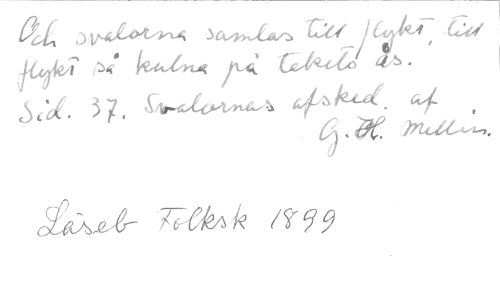 Och svalorna samlas till flykt, till
flykt så kulna på takets ås.
Sid. 37. Svalornas afsked. af
G. H. Mellin.
Läseb Folksk 1899